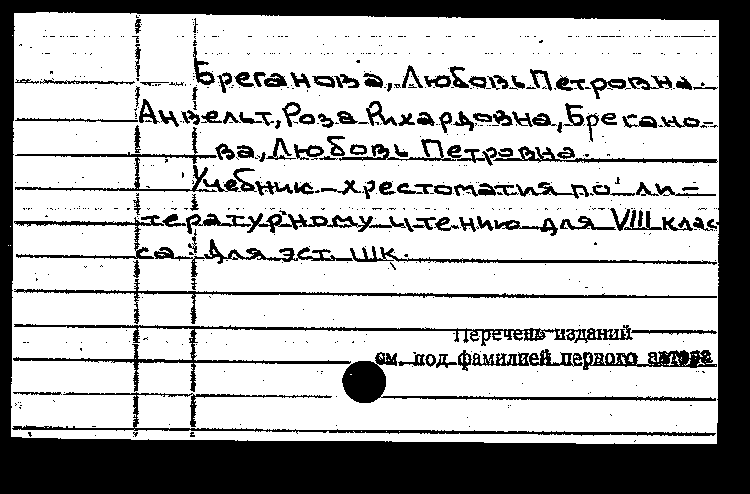 Бреганова, Любовь Петровна.
Анвельт, Роза Рихардовна, Брегано-
ва, Любовь Петровна.
Учебник-хрестоматия по ли-
тературному чтению для VIII клас-
са для эст. шк.
Перечень изданий
см. под фамилией первого автора